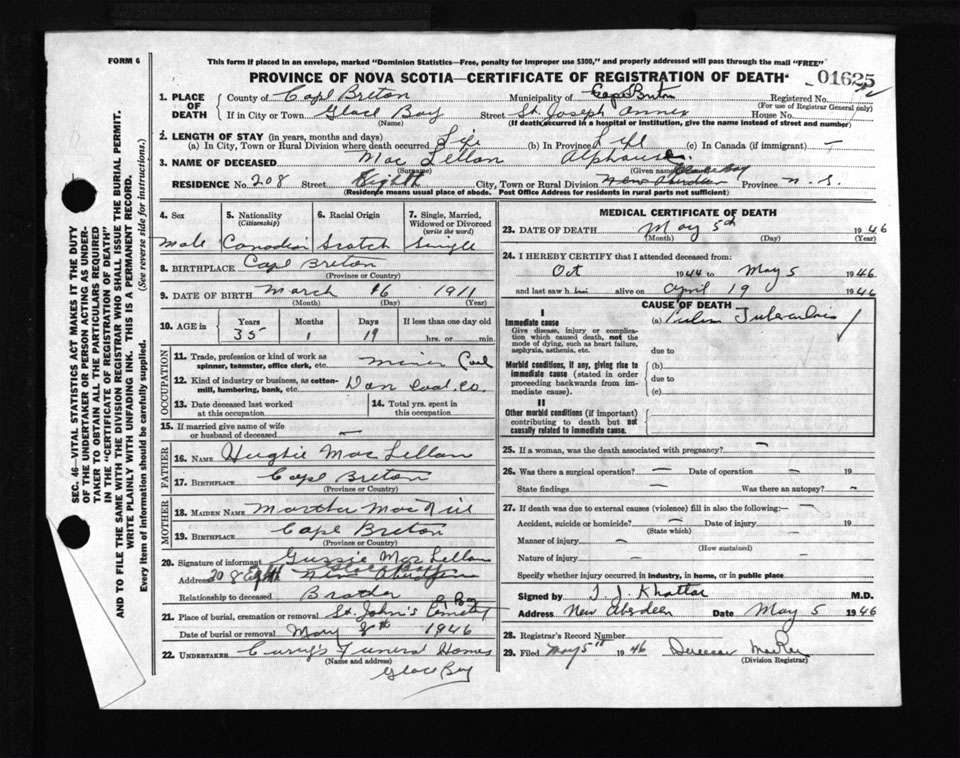 FORM 6
This form if placed in an envelope, marked "Dominion Statistics—Free, penalty for improper use $300," and properly addressed will pass through the mail "FREE"
PROVINCE OF NOVA SCOTIA—CERTIFICATE OF REGISTRATION OF DEATH
01625
1. PLACE OF DEATH
County of Cape Breton Municipality of Cape Breton Registered No.
(For use of Registrar General only)
If in City or Town Glace Bay Street St. Joseph House No.
(Name) (If death occurred in a hospital or institution, give the name instead of street and number)
2. LENGTH OF STAY (in years, months and days)
(a) In City, Town or Rural Division where death occurred Life (b) In Province Life (c) In Canada (if immigrant) —
3. NAME OF DECEASED Mac Lellan Alphonse
(Surname) (Given name)
Glace Bay
RESIDENCE No. 208 Street Eighth City, Town or Rural Division New Aberdeen Province N.S.
(Residence means usual place of abode. Post Office Address for residents in rural parts not sufficient)
4. Sex 5. Nationality (Citizenship) 6. Racial Origin 7. Single, Married, Widowed or Divorced (write the word)
Male Canadian Scotch Single
8. BIRTHPLACE Cape Breton
(Province or Country)
9. DATE OF BIRTH March 16 1911
(Month) (Day) (Year)
10. AGE in Years Months Days If less than one day old
35 1 19 hrs. or min.
OCCUPATION
11. Trade, profession or kind of work as spinner, teamster, office clerk, etc. Miner Coal
12. Kind of industry or business, as cotton-mill, lumbering, bank, etc. Dom Coal Co.
13. Date deceased last worked at this occupation 14. Total yrs. spent in this occupation
15. If married give name of wife or husband of deceased —
FATHER
16. NAME Hughie Mac Lellan
17. BIRTHPLACE Cape Breton
(Province or Country)
MOTHER
18. MAIDEN NAME Martha Mac Neil
19. BIRTHPLACE Cape Breton
(Province or Country)
20. Signature of informant Gussie Mac Lellan
Glace Bay
Address 208 Eighth New Aberdeen
Relationship to deceased Brother
21. Place of burial, cremation or removal St. John's Cemetery
Date of burial or removal May 8th 1946
22. UNDERTAKER Curry's Funeral Homes
(Name and address)
Glace Bay
MEDICAL CERTIFICATE OF DEATH
23. DATE OF DEATH May 5th 1946
(Month) (Day) (Year)
24. I HEREBY CERTIFY that I attended deceased from:
Oct 1944 to May 5 1946
and last saw him alive on April 19 1946
CAUSE OF DEATH
I
Immediate cause (a) Tuberculosis
Give disease, injury or complication which caused death, not the mode of dying, such as heart failure, asphyxia, asthenia, etc.
due to
Morbid conditions, if any, giving rise to immediate cause (stated in order proceeding backwards from immediate cause).
(b)
due to
(c)
II
Other morbid conditions (if important) contributing to death but not causally related to immediate cause.
25. If a woman, was the death associated with pregnancy? —
26. Was there a surgical operation? — Date of operation — 19
State findings — Was there an autopsy? —
27. If death was due to external causes (violence) fill in also the following:—
Accident, suicide or homicide? — Date of injury 19
(State which)
Manner of injury —
(How sustained)
Nature of injury —
Specify whether injury occurred in industry, in home, or in public place
Signed by T. J. Khattar M.D.
Address New Aberdeen Date May 5 1946
28. Registrar's Record Number
29. Filed May 5th 1946
(Division Registrar)
SEC. 46—VITAL STATISTICS ACT MAKES IT THE DUTY
OF THE UNDERTAKER OR PERSON ACTING AS UNDER-
TAKER TO OBTAIN ALL THE PARTICULARS REQUIRED
IN THE "CERTIFICATE OF REGISTRATION OF DEATH"
AND TO FILE THE SAME WITH THE DIVISION REGISTRAR WHO SHALL ISSUE THE BURIAL PERMIT.
WRITE PLAINLY WITH UNFADING INK. THIS IS A PERMANENT RECORD.
Every item of information should be carefully supplied. (See reverse side for instructions.)